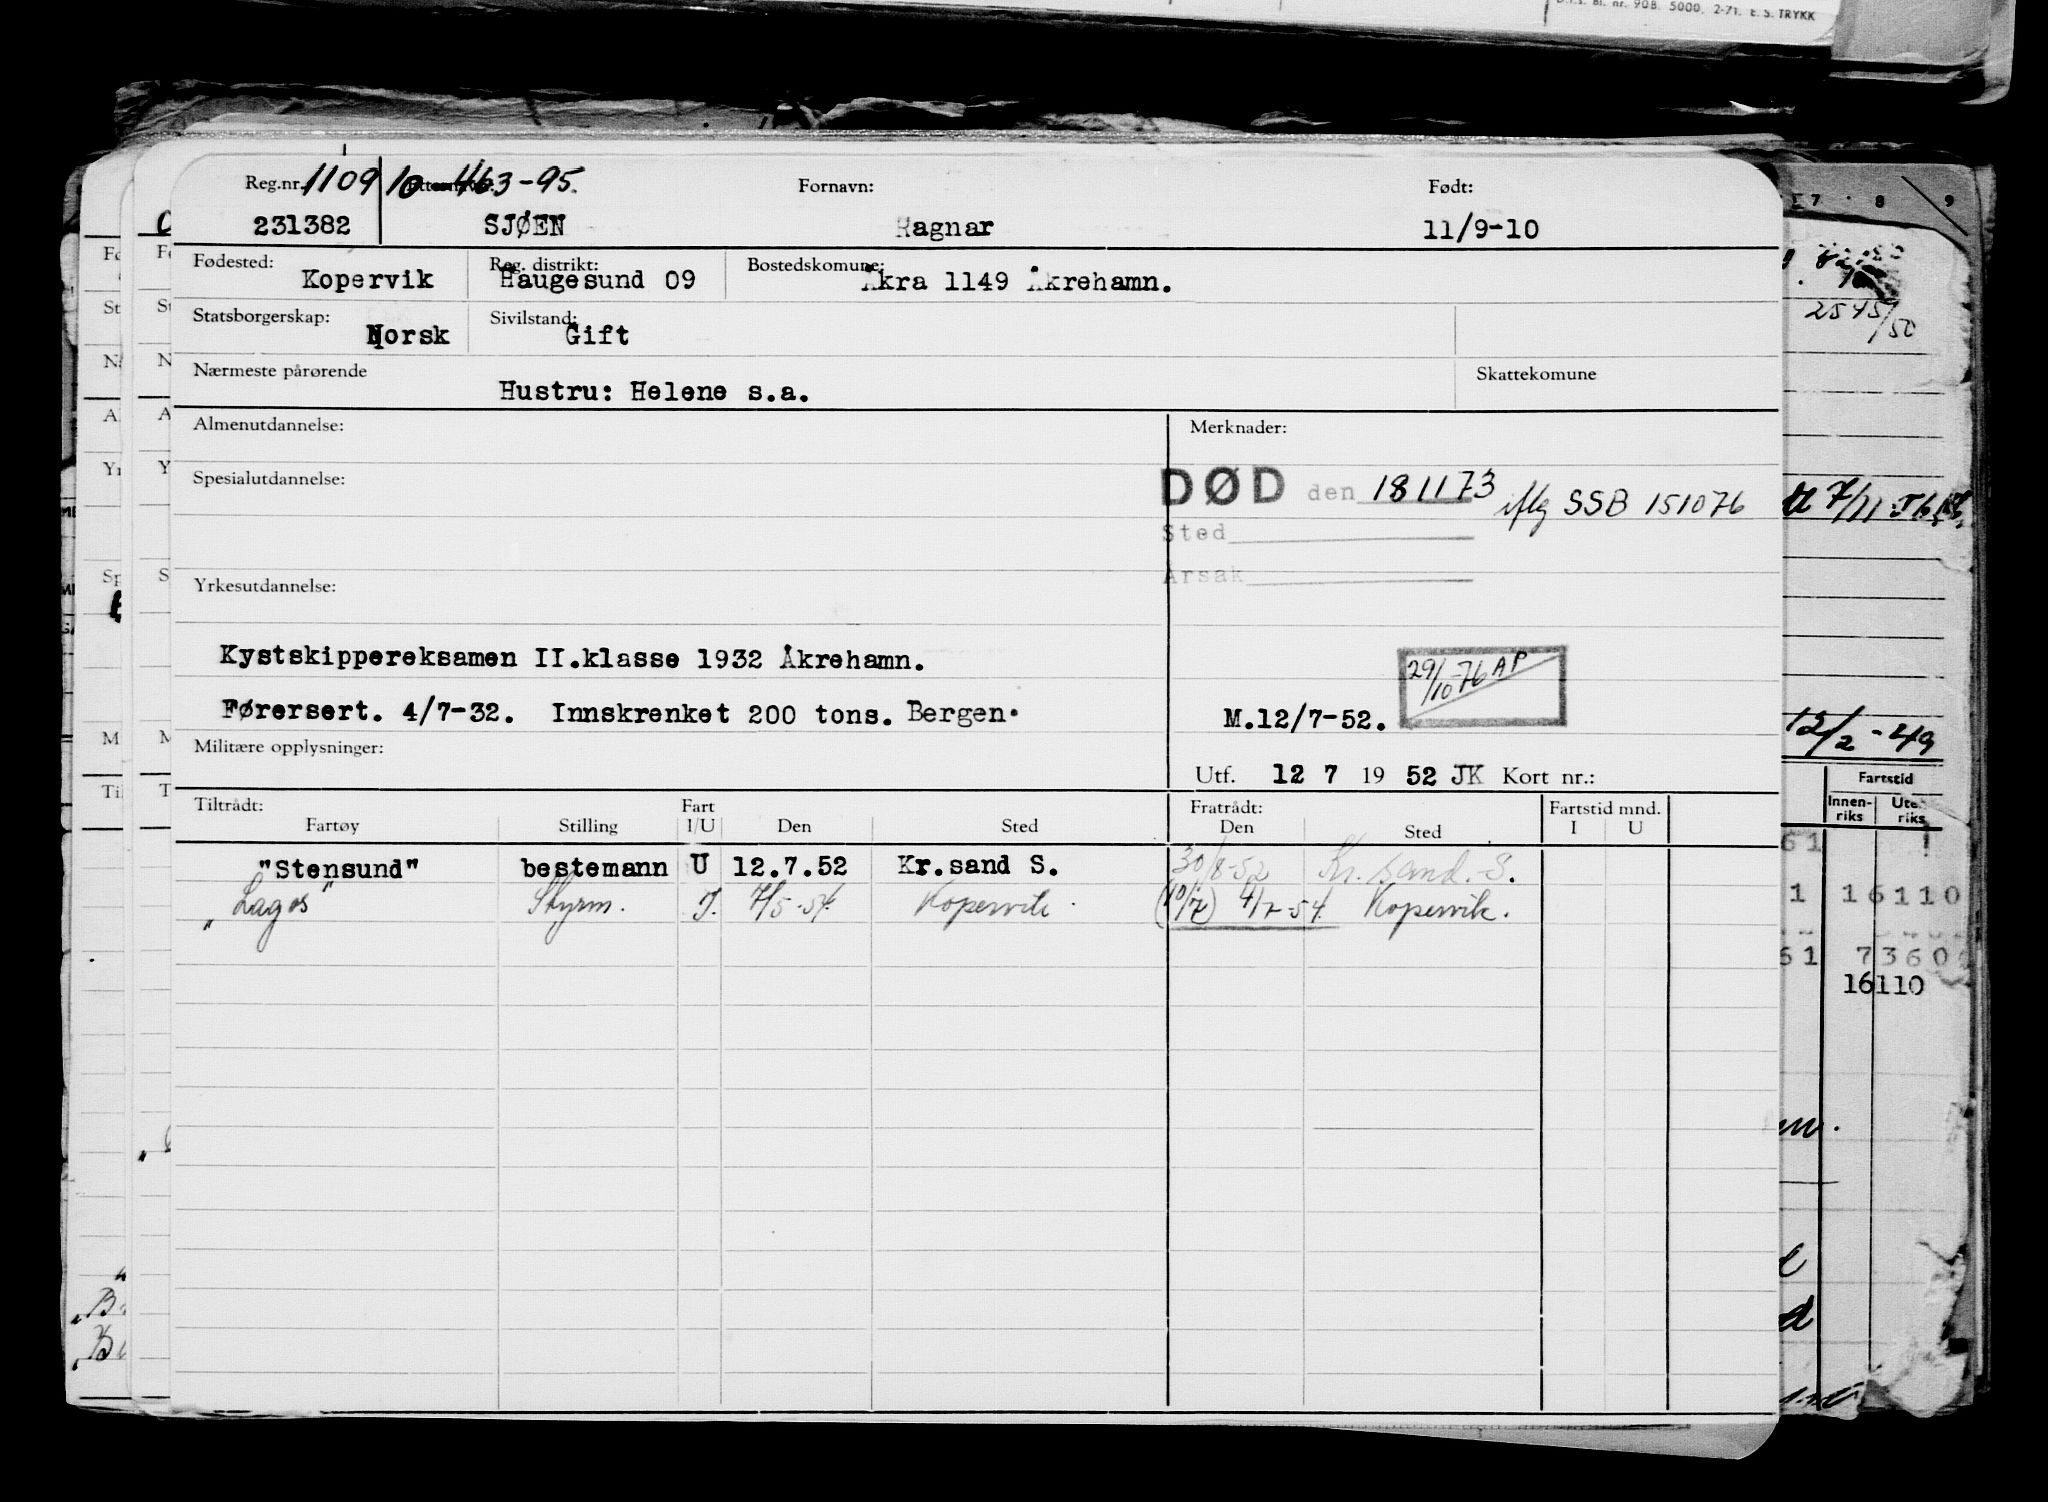 D.i.s. Bl. nr. 908. 5000. 2-71. E. S. TRYKK
Reg.nr. 110910 463-95. Fornavn: Født:
231382 SJØEN Ragnar 11/9-10
Fødested: Kopervik Reg. distrikt: Haugesund 09 Bostedskomune: Åkra 1149 Åkrehamn.
Statsborgerskap: Norsk Sivilstand: Gift
Nærmeste pårørende Hustru: Helene s.a. Skattekomune
Almenutdannelse: Merknader:
Spesialutdannelse: DØD den 181173 iflg SSB 151076
Sted
Årsak
Yrkesutdannelse:
Kystskippereksamen II.klasse 1932 Åkrehamn.
29/10-76 AP
Førersert. 4/7-32. Innskrenket 200 tons. Bergen. M.12/7-52.
Militære opplysninger:
Utf. 12 7 19 52 JK Kort nr.:
Tiltrådt: Fart Fratrådt: Fartstid mnd.
Fartøy Stilling I/U Den Sted Den Sted I U
"Stensund" bestemann U 12.7.52 Kr.sand S. 30/8-52 Kr. sand.-S.
"Lagos" Styrm. I. 7/5-54. Kopervik (10/7) 4/7-54. Kopervik.
7 8 9
2545/50
12/2-49
Fartstid
Innen-riks Uten-riks
61
1 16110
61 7360
16110